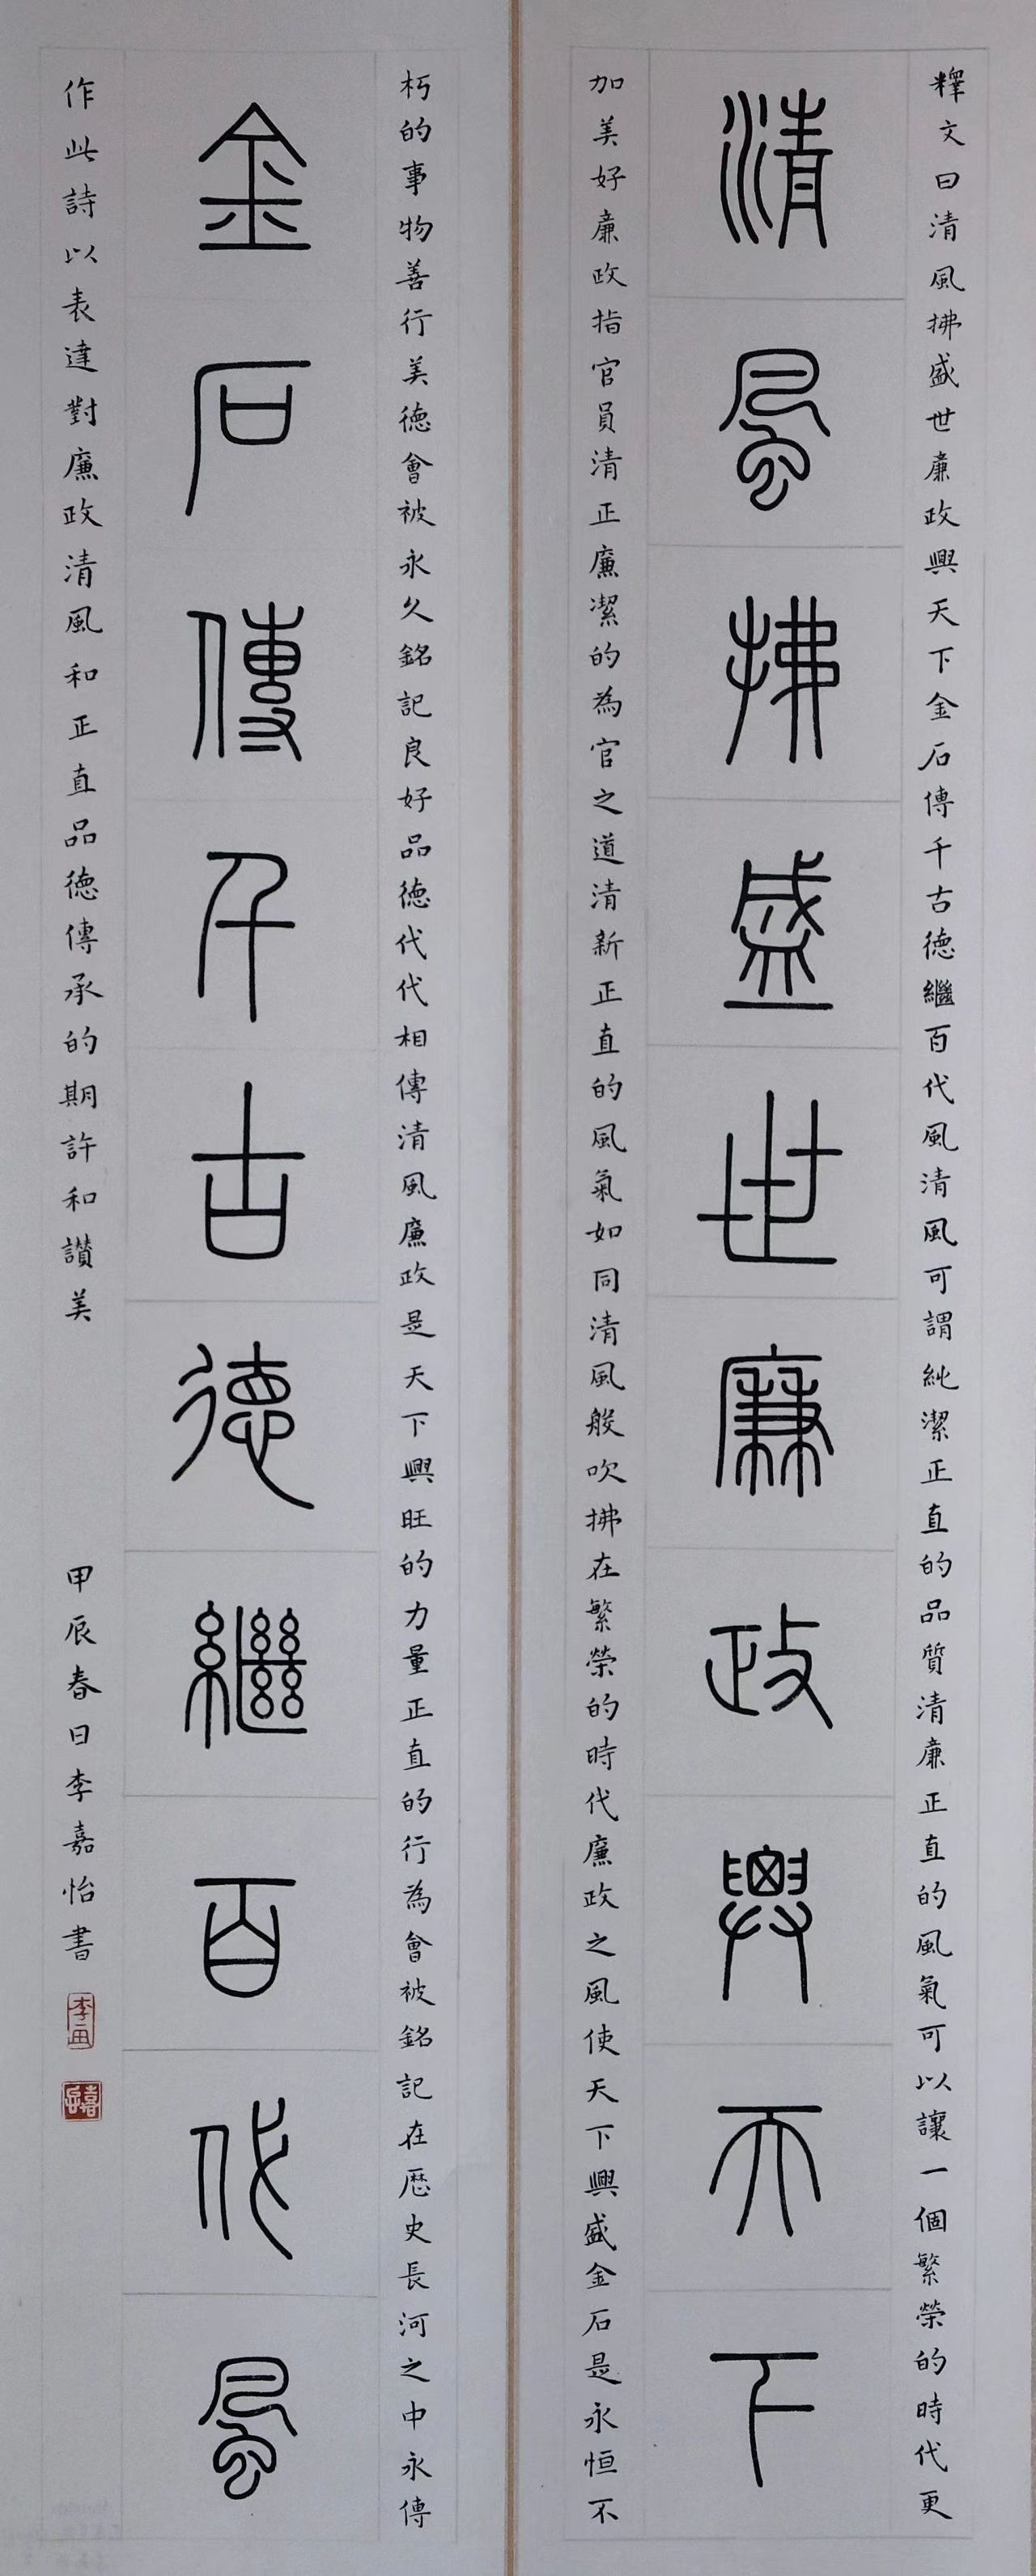 釋文曰清風拂盛世廉政興天下金石傳千古德繼百代風清風可謂純潔正直的品質清廉正直的風氣可以讓一個繁榮的時代更
清風拂盛世廉政興天下
加美好廉政指官員清正廉潔的為官之道清新正直的風氣如同清風般吹拂在繁榮的時代廉政之風使天下興盛金石是永恒不
朽的事物善行美德會被永久銘記良好品德代代相傳清風廉政是天下興旺的力量正直的行為會被銘記在歷史長河之中永傳
金石傳千古德繼百代風
作此詩以表達對廉政清風和正直品德傳承的期許和讚美
甲辰春日李嘉怡書